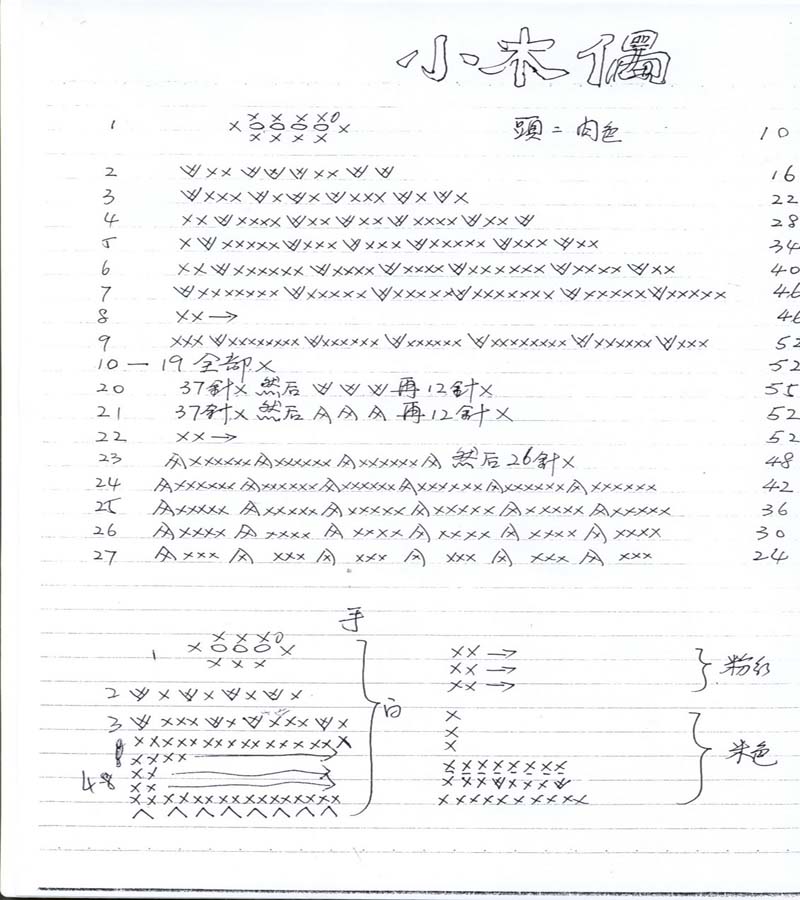 小木偶
1 x x x x 0 x 0 0 0 0 x x x x x 頭=肉色 10
2 W x x W W W x x W W 16
3 W x x x W x W x W x x x W x W x 22
4 x x W x x x x W x x W x x W x x x x W x x W 28
5 x W x x x x x W x x x W x x x W x x x x x W x x x W x x 34
6 x x W x x x x x x W x x x x W x x x x W x x x x x x W x x x x W x x 40
7 W x x x x x x x W x x x x x W x x x x x W x x x x x x x W x x x x x W x x x x x 46
8 x x → 46
9 x x x W x x x x x x x x W x x x x x x W x x x x x x W x x x x x x x x W x x x x x x W x x x 52
10 — 19 全部 x 52
20 37針x 然后 W W W 再12針x 55
21 37針x 然后 A A A 再12針x 52
22 x x → 52
23 A x x x x x x A x x x x x x A x x x x x x A 然后26針x 48
24 A x x x x x x A x x x x x x A x x x x x x A x x x x x x A x x x x x x A x x x x x x 42
25 A x x x x x A x x x x x A x x x x x A x x x x x A x x x x x A x x x x x 36
26 A x x x x A x x x x A x x x x A x x x x A x x x x A x x x x 30
27 A x x x A x x x A x x x A x x x A x x x A x x x 24
手
1 x x x 0 x 0 0 0 x x x x
2 W x W x W x W x W x
3 W x x x W x W x x x W x
x x x x x x x x x x x x
x x x x →
4-8 x x →
x x →
x x x x x x x x x x x x
^ ^ ^ ^ ^ ^ ^ ^
白
x x →
x x →
x x →
粉紅
x
x
x
x x x x x x x x
x x x W x x x W
x x x x x x x x x x
米色